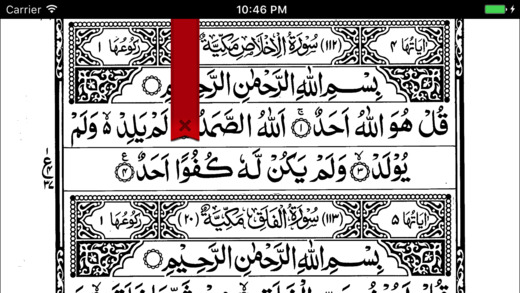 Carrier 10:46 PM
اٰيَاتُهَا ٤ (١١٢) سُوْرَةُ الْاِخْلَاصِ مَكِّيَّةٌ رُكُوْعُهَا ١
بِسْمِ اللّٰهِ الرَّحْمٰنِ الرَّحِيْمِ
قُلْ هُوَ اللّٰهُ اَحَدٌ ١ اَللّٰهُ الصَّمَدُ لَمْ يَلِدْ ۵ وَلَمْ
يُوْلَدْ ٣ وَلَمْ يَكُنْ لَّهٗ كُفُوًا اَحَدٌ ٤
اٰيَاتُهَا ٥ (١١٣) سُوْرَةُ الْفَلَقِ مَكِّيَّةٌ (٢٠) رُكُوْعُهَا ١
بِسْمِ اللّٰهِ الرَّحْمٰنِ الرَّحِيْمِ